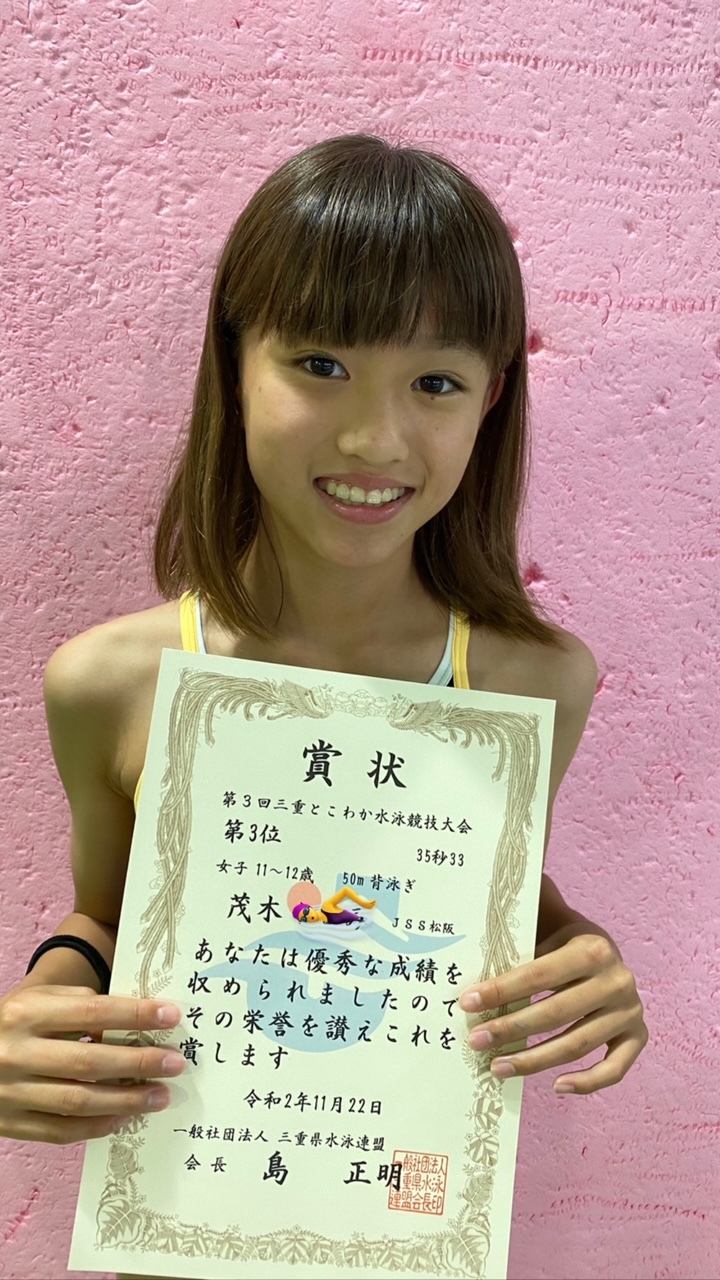 賞状
第3回三重とこわか水泳競技大会
第3位
35秒33
女子 11～12歳 50m 背泳ぎ
茂木 JSS松阪
あなたは優秀な成績を
収められましたので
その栄誉を讃えこれを
賞します
令和2年11月22日
一般社団法人 三重県水泳連盟
会長 島 正明
一般社団法人
三重県水泳
連盟会長印